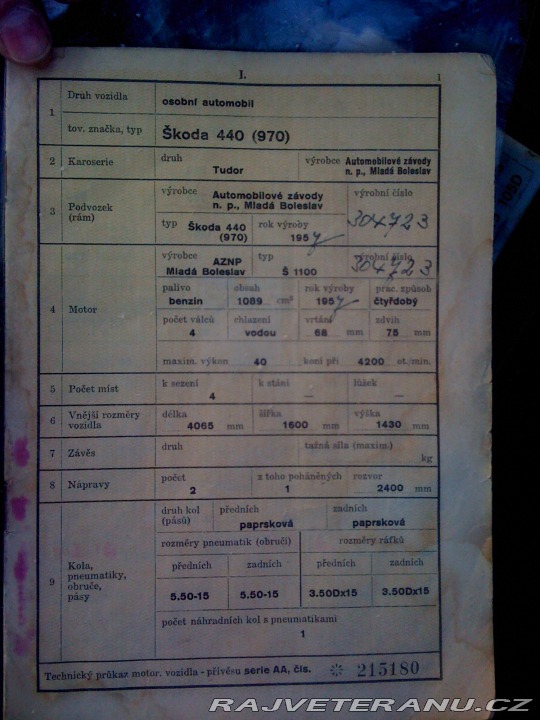 I.
1
1 Druh vozidla osobní automobil
tov. značka, typ Škoda 440 (970)
2 Karoserie druh Tudor výrobce Automobilové závody n. p., Mladá Boleslav
3 Podvozek (rám) výrobce Automobilové závody n. p., Mladá Boleslav výrobní číslo 304723
typ Škoda 440 (970) rok výroby 1957
4 Motor výrobce AZNP Mladá Boleslav typ Š 1100 výrobní číslo 304723
palivo benzin obsah 1089 cm³ rok výroby 1957 prac. způsob čtyřdobý
počet válců 4 chlazení vodou vrtání 68 mm zdvih 75 mm
maxim. výkon 40 koní při 4200 ot./min.
5 Počet míst k sezení 4 k stání — lůžek —
6 Vnější rozměry vozidla délka 4065 mm šířka 1600 mm výška 1430 mm
7 Závěs druh tažná síla (maxim.) kg
8 Nápravy počet 2 z toho poháněných 1 rozvor 2400 mm
9 Kola, pneumatiky, obruče, pásy druh kol (pásů) předních paprsková zadních paprsková
rozměry pneumatik (obručí) rozměry ráfků
předních zadních předních zadních
5.50-15 5.50-15 3.50Dx15 3.50Dx15
počet náhradních kol s pneumatikami
1
Technický průkaz motor. vozidla - přívěsu serie AA, čís. 215180
RAJVETERANU.CZ